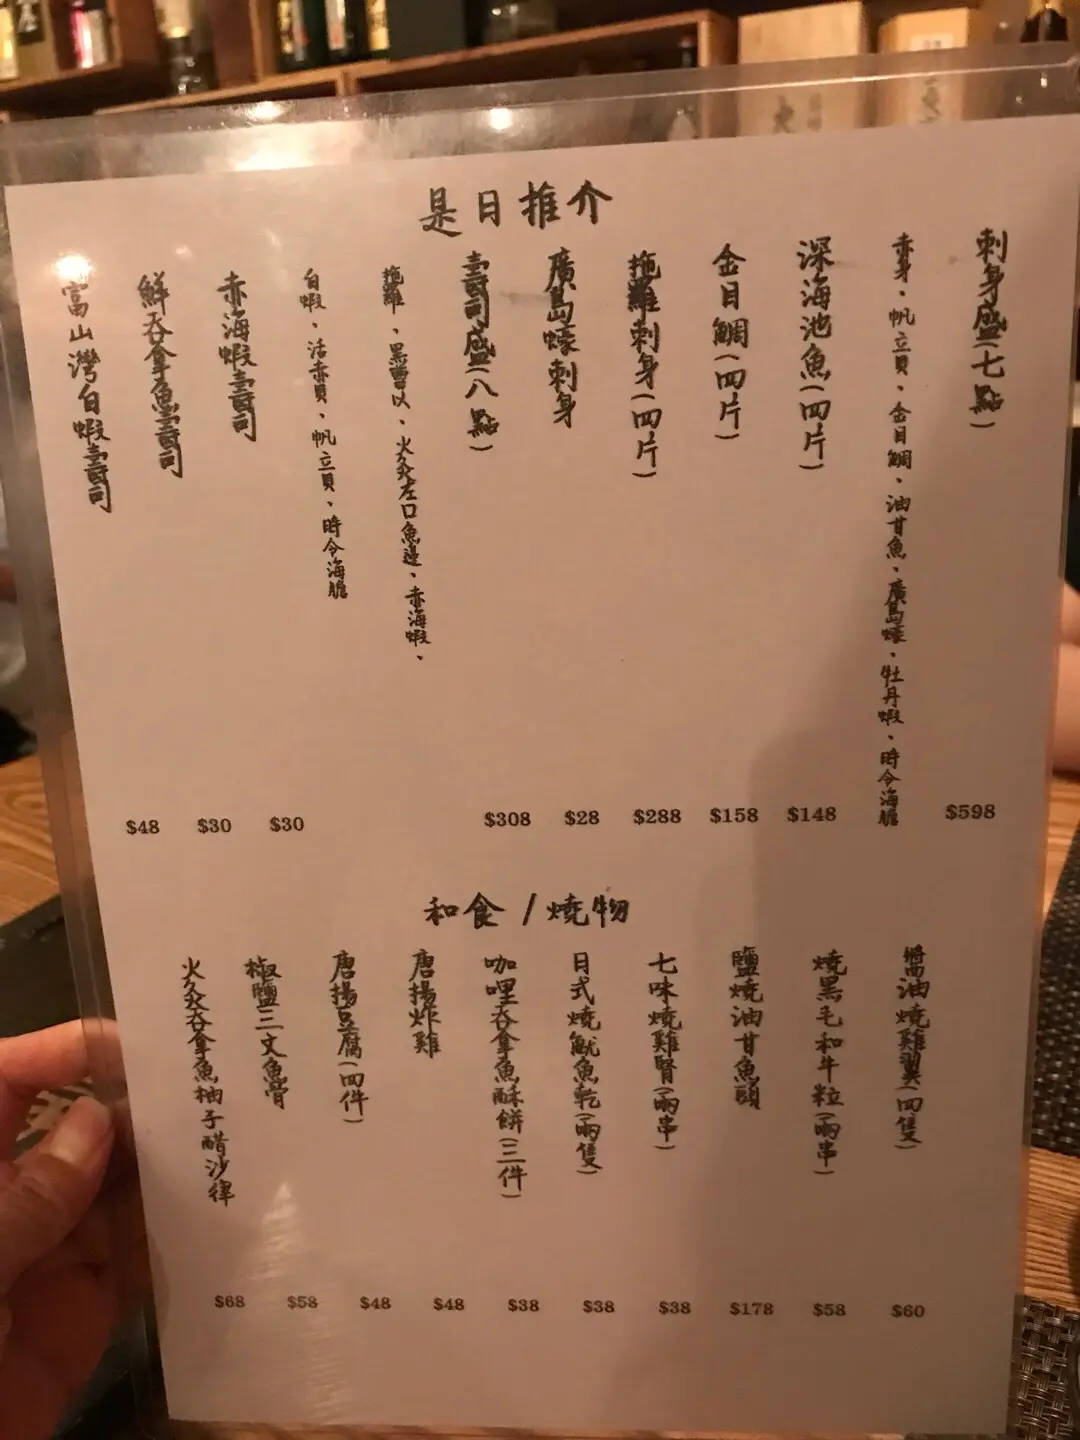 是日推介
刺身盛(七點)
赤身、帆立貝、金目鯛、油甘魚、廣島蠔、牡丹蝦、時令海膽
$598
深海池魚(四片)
$148
金目鯛(四片)
$158
拖羅刺身(四片)
$288
廣島蠔刺身
$28
壽司盛(八點)
$308
拖羅、黑曹以、火炙左口魚邊、赤海蝦、
白蝦、活赤貝、帆立貝、時令海膽
赤海蝦壽司
$30
鮮吞拿魚壽司
$30
富山灣白蝦壽司
$48
和食/燒物
醬油燒雞翼(四隻)
$60
燒黑毛和牛粒(兩串)
$58
鹽燒油甘魚頭
$178
七味燒雞腎(兩串)
$38
日式燒魷魚乾(兩隻)
$38
咖哩吞拿魚酥餅(三件)
$38
唐揚炸雞
$48
唐揚豆腐(四件)
$48
椒鹽三文魚骨
$58
火炙吞拿魚柚子醋沙律
$68